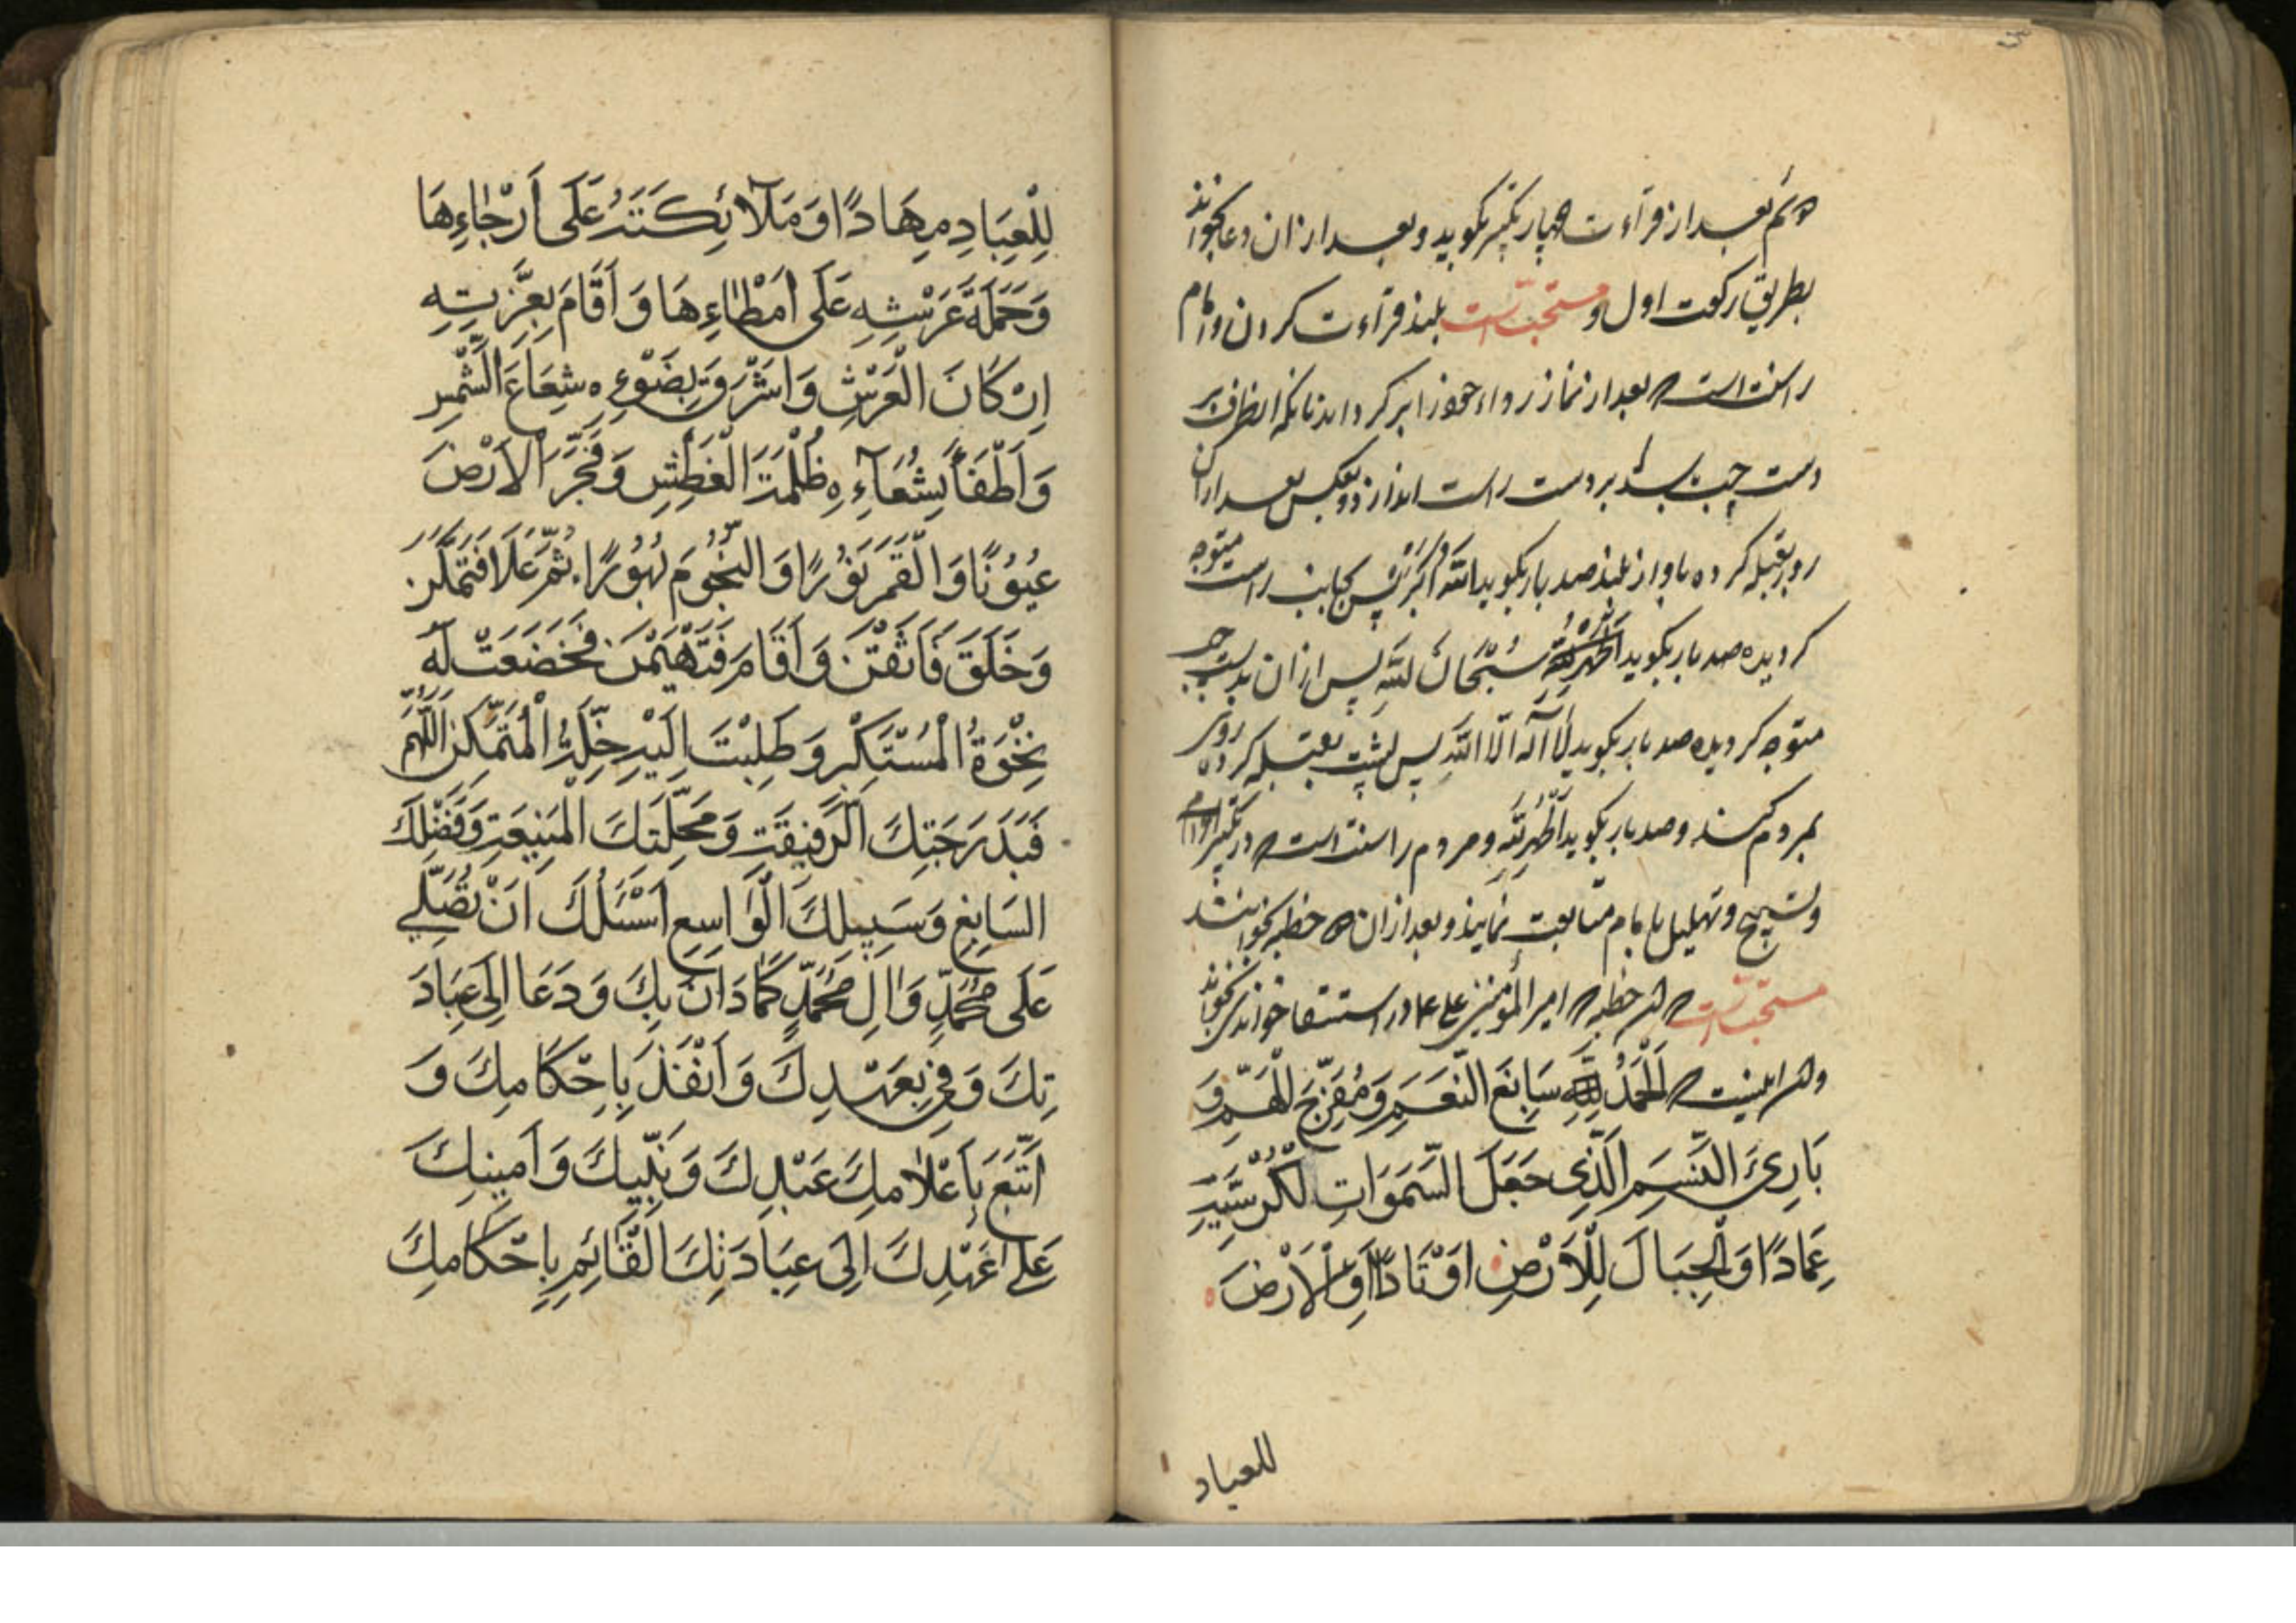 دویم بعد از قراءت چهار تکبیر بگوید و بعد از ان دعا بخواند
بطریق رکعت اول و مستحبّ است بلند قراءت کردن و امام
را سنت است که بعد از نماز رداء خود را بر کرداند تا آنکه انطرف بر
دست چپ باشد بر دست راست اندازد و بعکس بعد از ان
رو بقبله کرده باواز بلند صد بار بکوید اللّه اکبر پس بجانب راست متوجه
کردیده صد بار بکوید سُبْحَانَ اللّهِ پس از ان بدست چپ
متوجّه کردیده صد بار بکوید لَا آلٰه الّا اللّه پس پشت بقبله کرده روی
بمردم کند و صد بار بکوید اَلْحَمْدُ لِلّهِ و مردم را سنت است که در تکبیر
و تسبیح و تهلیل با امام متابعت نمایند و بعد از ان دو خطبه بخوانند
مستحبّ است که این خطبه که امیر المؤمنین علی ع در استسقا خوانده‌اند بخواند
و ان اینست که اَلْحَمْدُ لِلّهِ سَابِغَ النّعَمِ وَمُفَرِّجَ الْهَمِّ وَ
بَارِئَ النَّسَمِ الَّذِی جَعَلَ السَّمَوَاتِ لِکُرْسِیِّهِ
عِمَادًا وَ الْجِبَالَ لِلْاَرْضِ اَوْتَادًا وَ الْاَرْضَ
للعباد
لِلْعِبَادِ مِهَادًا وَ مَلَآئِکَتَهُ عَلَی اَرْجَاءِهَا
وَ حَمَلَةَ عَرْشِهِ عَلَی اَمْطَاءِهَا وَ اَقَامَ بِعِزَّتِهِ
اِرْکَانَ الْعَرْشِ وَ اَشْرَقَ بِضَوْءِهِ شِعَاعَ الشَّمْسِ
وَ اَطْفَأَ بِشُعَآءِهِ ظُلْمَةَ الْغَطْشِ وَ فَجَّرَ الْاَرْضَ
عُیُوْنًا وَ الْقَمَرَ نُوْرًا وَ النُّجُوْمَ بُهُوْرًا ثُمَّ عَلَا فَتَمَکَّنَ
وَ خَلَقَ فَاَتْقَنَ وَ اَقَامَ فَتَهَیْمَنَ فَخَضَعَتْ لَهُ
نِخْوَةُ الْمُسْتَکْبِرِ وَ طَلِبَتْ اِلَیْهِ خَلَّةُ الْمُتَمَکِّنِ اَللّهُمَّ
فَبِدَرَجَتِکَ الرَّفِیْعَةِ وَ مَحَلَّتِکَ الْمَنِیْعَةِ وَ فَضْلِکَ
السَابِغِ وَ سَبِیلِکَ الْوَاسِعِ اَسْئَلُکَ اَنْ تُصَلِّیَ
عَلَی مُحَمَّدٍ وَ اٰلِ مُحَمَّدٍ کَمَا دَانَ بِکَ وَ دَعَا اِلَی عِبَادَ
تِکَ وَ فِی بِعَهْدِکَ وَ اَنْفَذَ بِاِحْکَامِکَ وَ
اَتَّبَعَ بِاَعْلَامِکَ عَبْدِکَ وَ نَبِّیِکَ وَ اَمِینِکَ
عَلٰی عَهْدِکَ اِلَی عِبَادَتِکَ الْقَائِمِ بِاِحْکَامِکَ